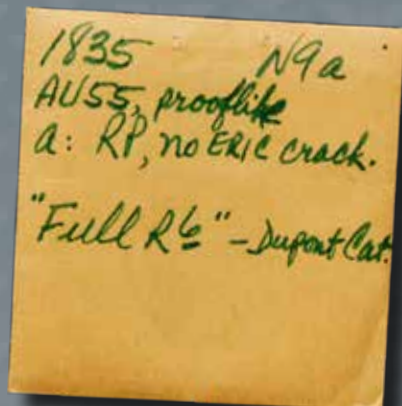 1835 N9a
AU55, prooflike
a: RP, no ERIC crack.
"Full R6" - Dupont Cat.